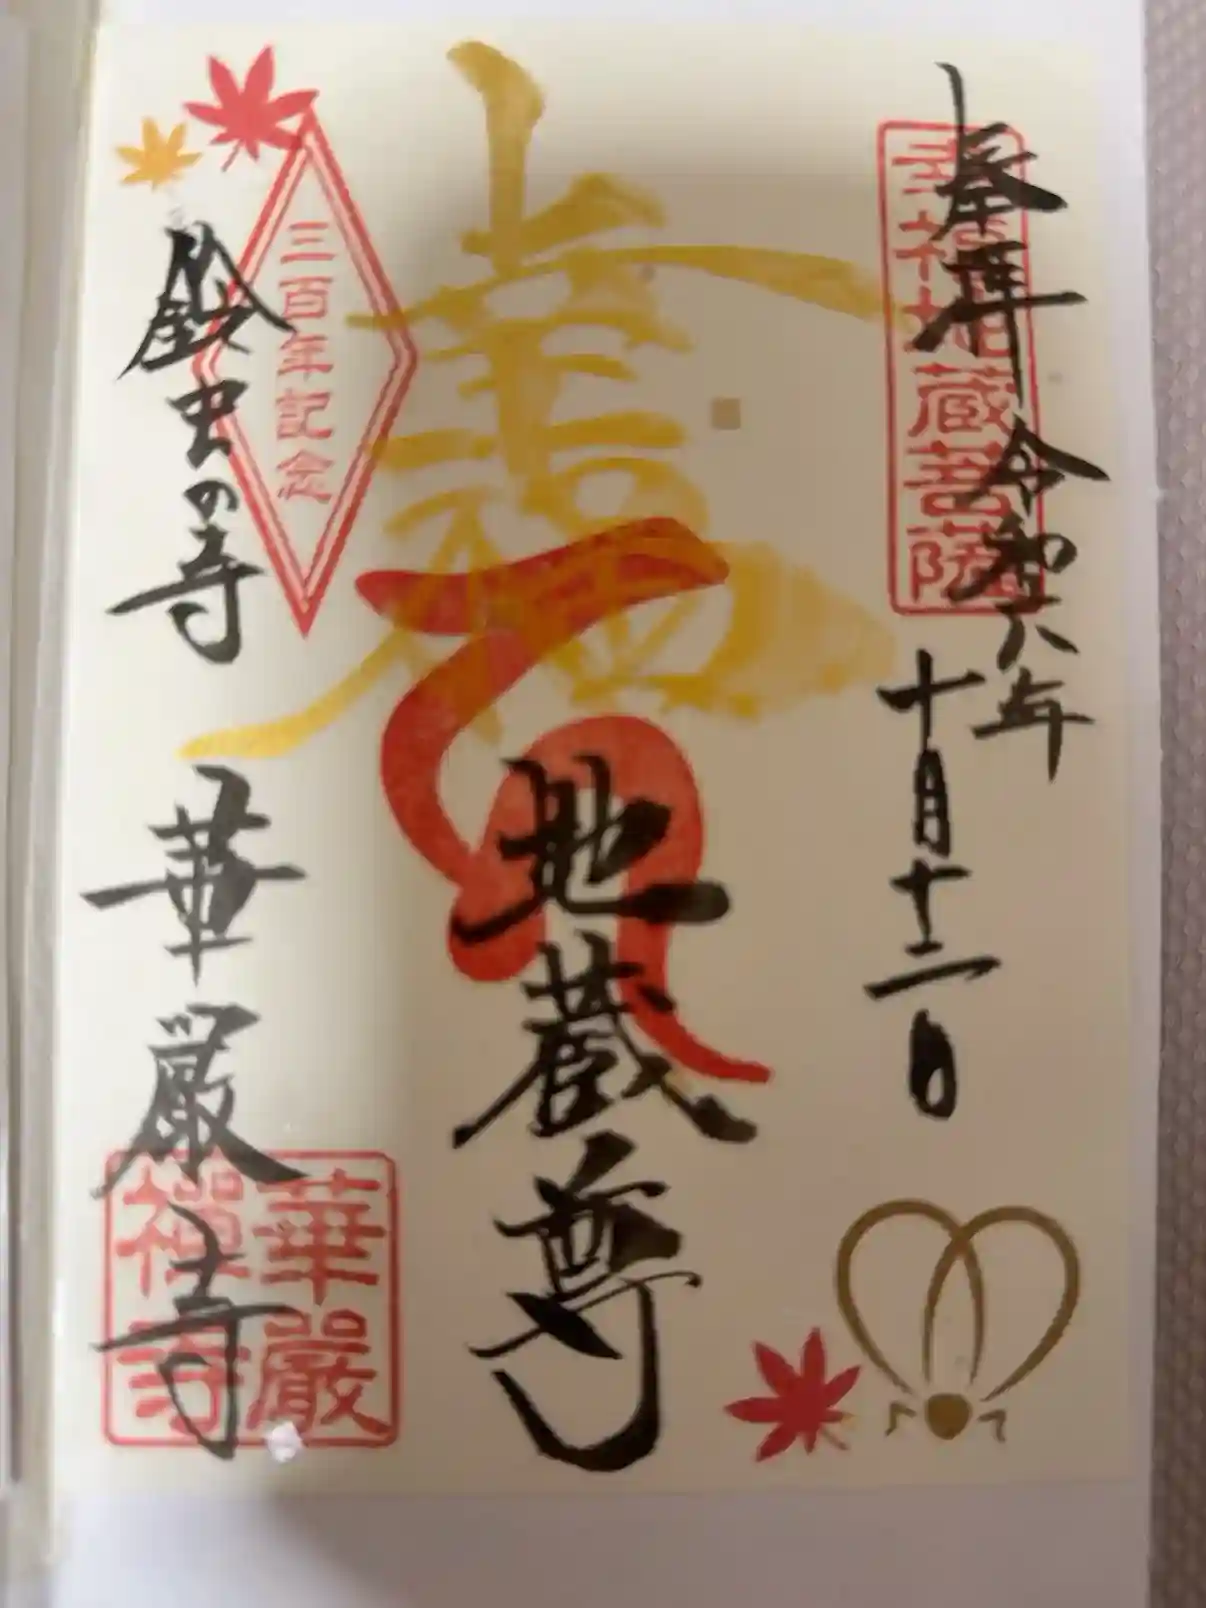 奉拝 令和六年
十月十二日
幸福地蔵菩薩
幸福
地蔵尊
三百年記念
鈴虫の寺 華厳寺
華嚴
禅寺